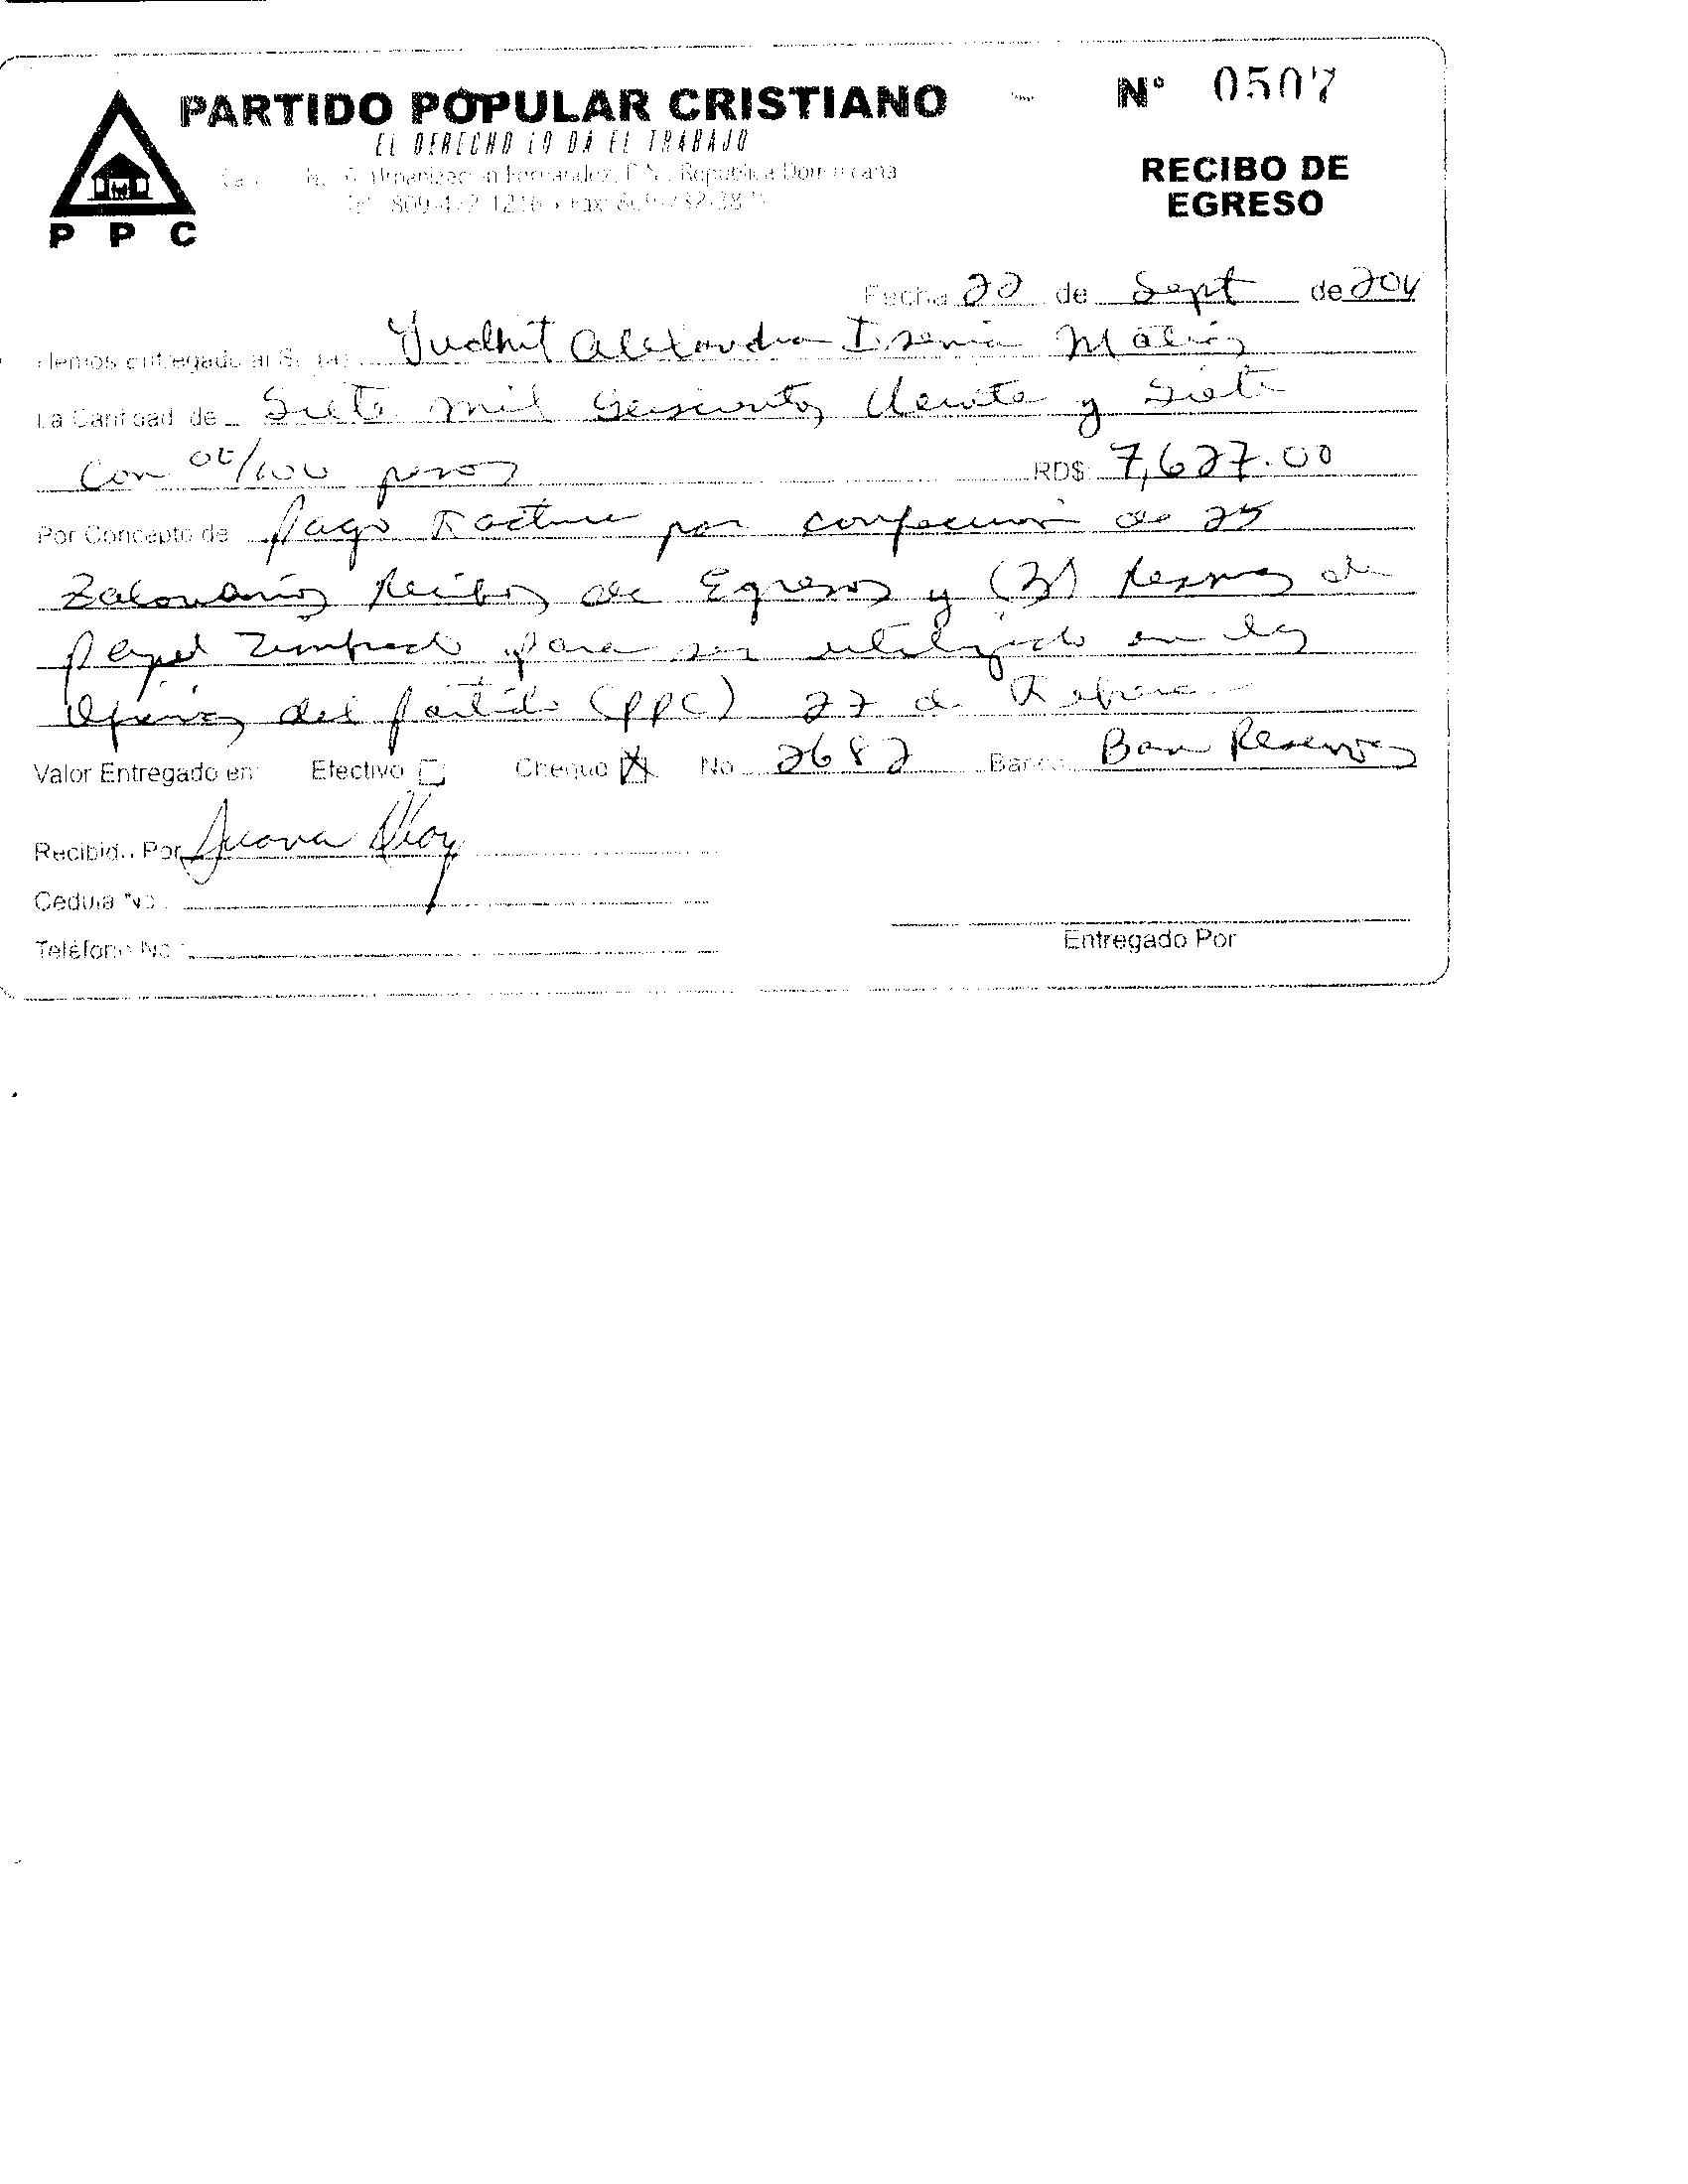 PARTIDO POPULAR CRISTIANO
Nº 0507
EL DERECHO LO DA EL TRABAJO
Urbanización Fernández, República Dominicana
RECIBO DE
EGRESO
P P C
Fecha 22 de Sept de
Hemos entregado al Sr. (a) Yudhit Alexandra Isenia Matías
La Cantidad de Siete mil Seiscientos Veinte y Siete
Con 00/100 pesos RD$ 7,627.00
Por Concepto de Pago Factura por confección de 25
Talonarios Recibos de Egresos y (3) Resmas de
papel Timbrado para ser utilizado en las
Oficinas del partido (PPC) 27 de Febrero
Valor Entregado en: Efectivo Cheque X No. 2682 Banco Ban Reservas
Recibido Por Juana
Cedula No.
Teléfono No.
Entregado Por